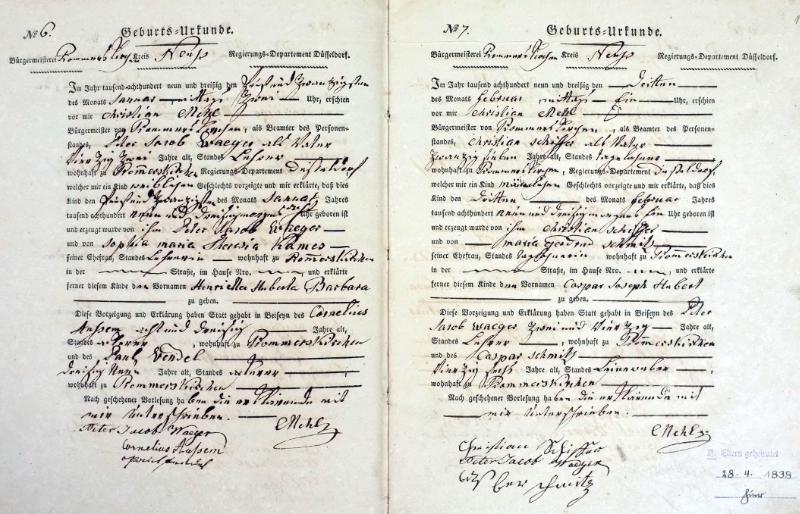 № 6. Geburts-Urkunde.
Bürgermeisterei Rommerskirchen Kreis Neuß Regierungs-Departement Düsseldorf.
Im Jahr tausend achthundert neun und dreißig den fünf und zwanzigsten
des Monats Januar mittags zwei Uhr, erschien
vor mir Christian Mehl
Bürgermeister von Rommerskirchen, als Beamter des Personen-
standes, Peter Jacob Waeger als Vater
vierzig zwei Jahre alt, Standes Lehrer
wohnhaft zu Rommerskirchen Regierungs-Departement Düsseldorf
welcher mir ein Kind weiblichen Geschlechts vorzeigte und mir erklärte, daß dies
Kind den fünf und zwanzigsten des Monats Januar Jahres
tausend achthundert neun und dreißig morgens Uhr geboren ist
und erzeugt wurde von ihm Peter Jacob Waeger
und von Sophia Maria Theresia Kames
seiner Ehefrau, Standes Lehrerin wohnhaft zu Rommerskirchen
in der Straße, im Hause Nro. und erklärte
ferner diesem Kinde den Vornamen Henriette Huberta Barbara
zu geben.
Diese Vorzeigung und Erklärung haben Statt gehabt in Beiseyn des Cornelius
Aussem acht und dreißig Jahre alt,
Standes, wohnhaft zu Rommerskirchen
und des Paul Wendel
dreißig Jahre alt, Standes
wohnhaft zu Rommerskirchen
Nach geschehener Vorlesung haben die erklärende mit
mir unterschrieben.
Peter Jacob Waeger CMehl
Cornelius Aussem
№ 7. Geburts-Urkunde.
Bürgermeisterei Rommerskirchen Kreis Neuß Regierungs-Departement Düsseldorf.
Im Jahr tausend achthundert neun und dreißig den dritten
des Monats Februar mittags ein Uhr, erschien
vor mir Christian Mehl
Bürgermeister von Rommerskirchen, als Beamter des Personen-
standes, Christian Schiffer als Vater
zwanzig sieben Jahre alt, Standes Tagelöhner
wohnhaft zu Rommerskirchen, Regierungs-Departement Düsseldorf,
welcher mir ein Kind männlichen Geschlechts vorzeigte und mir erklärte, daß dies
Kind den dritten des Monats Februar Jahres
tausend achthundert neun und dreißig morgens Uhr geboren ist
und erzeugt wurde von ihm Christian Schiffer
und von Maria Gertrud Schmitz
seiner Ehefrau, Standes Tagelöhnerin wohnhaft zu Rommerskirchen
in der Straße, im Hause Nro. und erklärte
ferner diesem Kinde den Vornamen Caspar Joseph Hubert
zu geben.
Diese Vorzeigung und Erklärung haben Statt gehabt in Beiseyn des Peter
Jacob Waeger zwei und vierzig Jahre alt,
Standes Lehrer, wohnhaft zu Rommerskirchen
und des Caspar Schmitz
vierzig Jahre alt, Standes Leineweber
wohnhaft zu Rommerskirchen
Nach geschehener Vorlesung haben die erklärende mit
mir unterschrieben.
CMehl
Christian Schiffer
Peter Jacob Waeger
Schmitz
Eltern geheiratet
28. 4. 1838